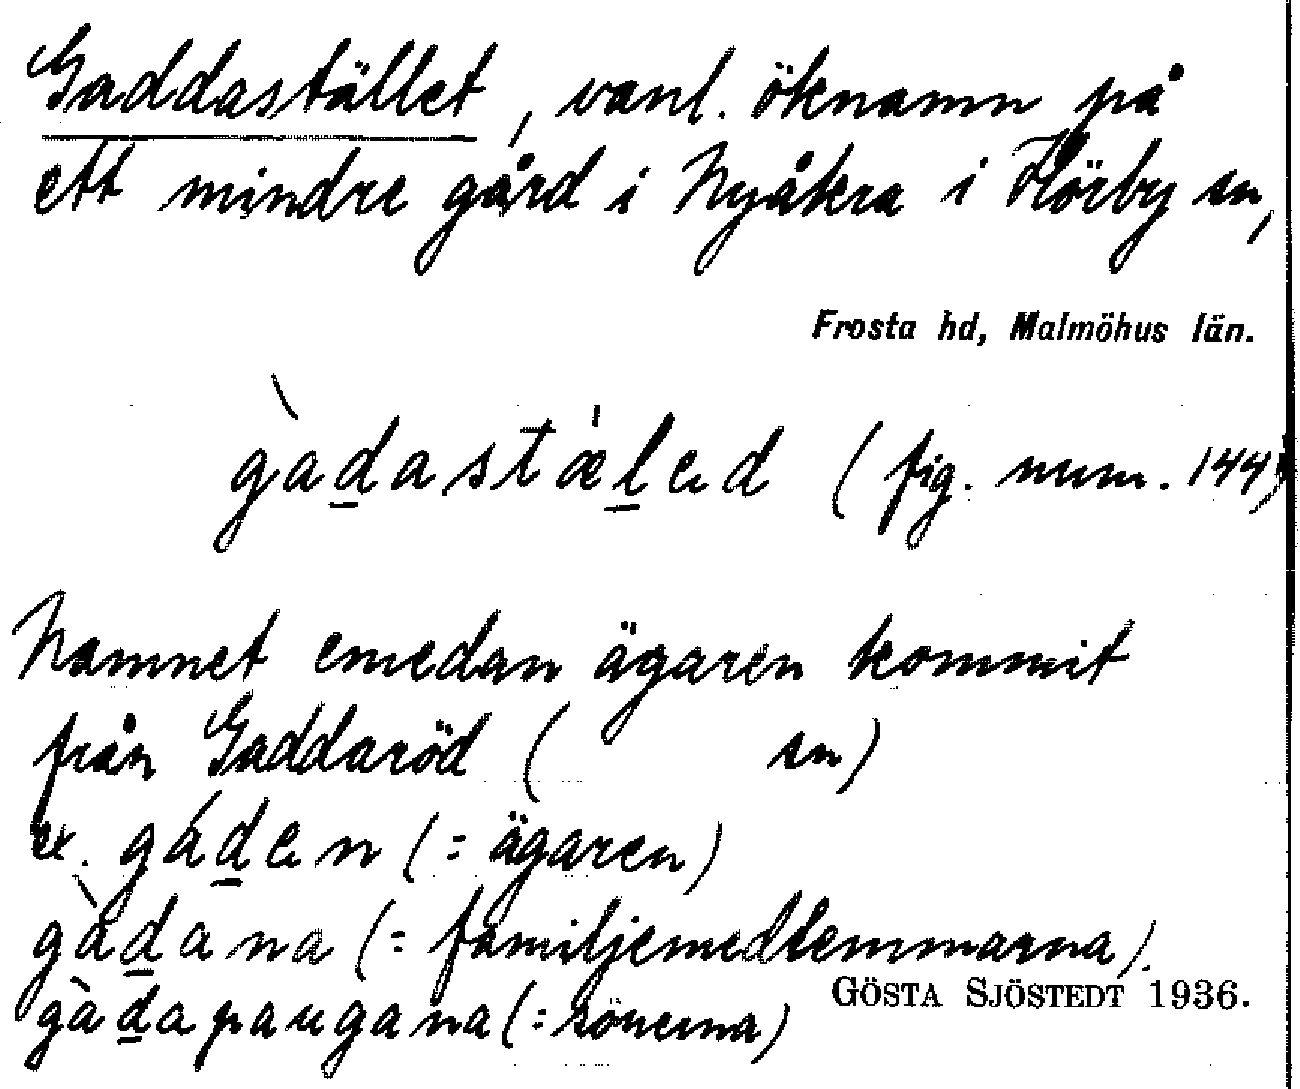 Gaddastället, vanl. öknamn på
ett mindre gård i Nyåkra i Hörby sn,
Frosta hd, Malmöhus län.
gàd̲astæ̍l̲ed (fig. num. 144)
Namnet emedan ägaren kommit
från Gaddaröd ( sn)
ex. gád̲en (= ägaren)
gàd̲ana (= familjemedlemmarna).
gàd̲apaugana (= sönerna)
GÖSTA SJÖSTEDT 1936.